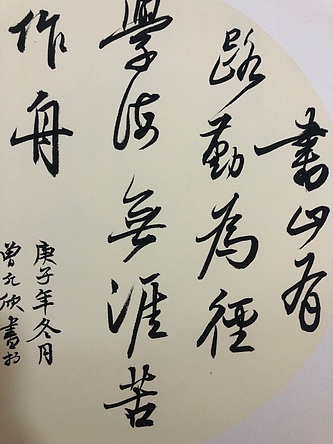 書山有
路勤為徑
學海無涯苦
作舟
庚子年冬月
曾元欣書於